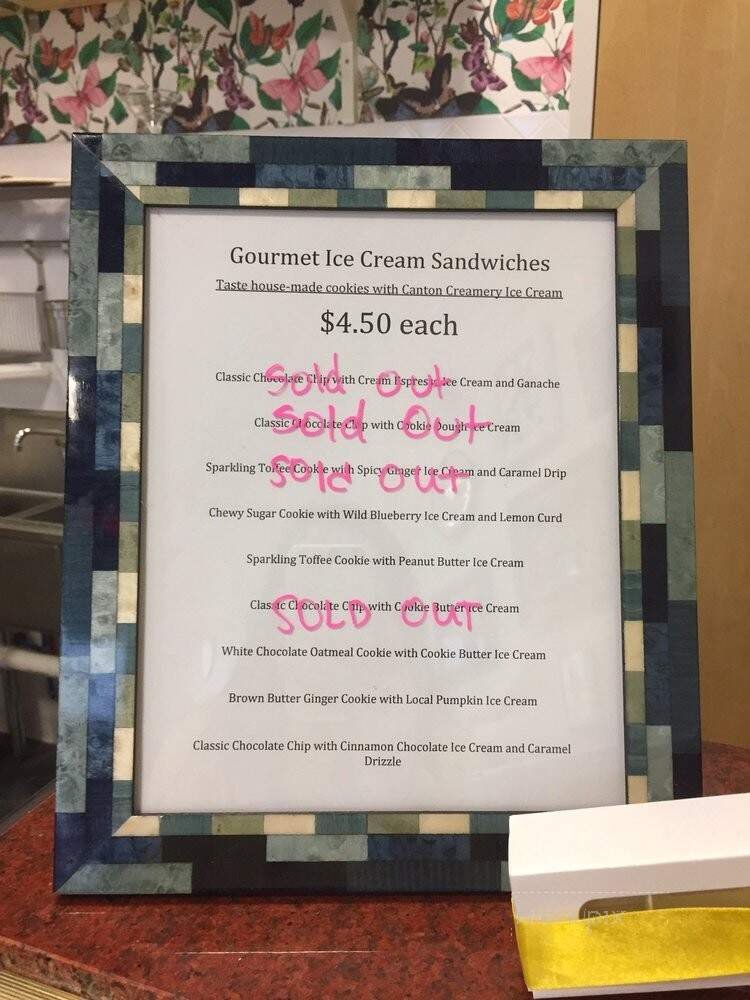 Gourmet Ice Cream Sandwiches
Taste house-made cookies with Canton Creamery Ice Cream
$4.50 each
Classic Chocolate Chip with Cream Espresso Ice Cream and Ganache
Sold Out
Classic Chocolate Chip with Cookie Dough Ice Cream
Sold Out
Sparkling Toffee Cookie with Spicy Ginger Ice Cream and Caramel Drip
Sold Out
Chewy Sugar Cookie with Wild Blueberry Ice Cream and Lemon Curd
Sparkling Toffee Cookie with Peanut Butter Ice Cream
Classic Chocolate Chip with Cookie Butter Ice Cream
SOLD OUT
White Chocolate Oatmeal Cookie with Cookie Butter Ice Cream
Brown Butter Ginger Cookie with Local Pumpkin Ice Cream
Classic Chocolate Chip with Cinnamon Chocolate Ice Cream and Caramel
Drizzle